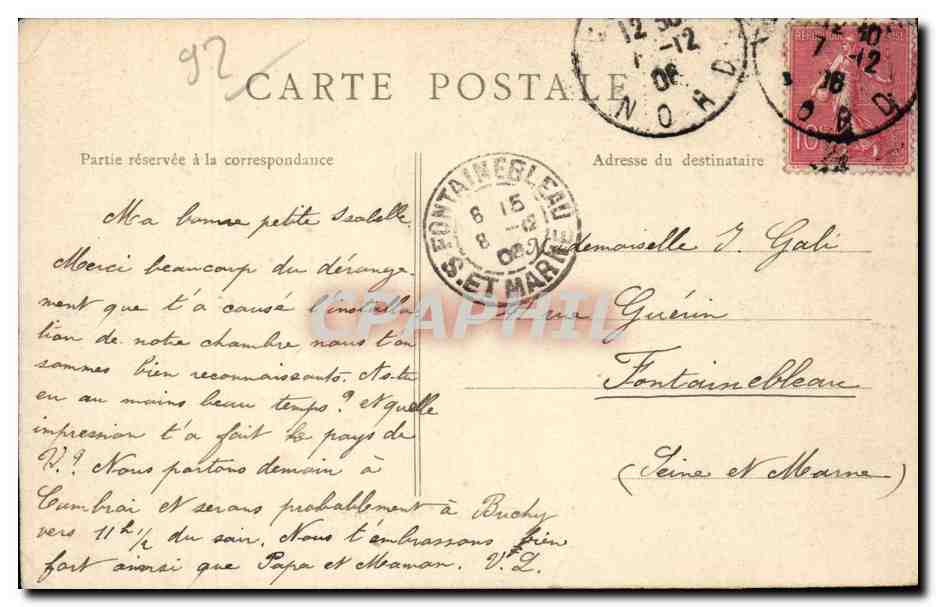 92
CARTE POSTALE
Partie réservée à la correspondance
Adresse du destinataire
12 30
7 -12
06
NORD
REPUBLIQUE FRANÇAISE
7 -12
10
FONTAINEBLEAU
8 15
8 -12
06
S. ET MARNE
Ma bonne petite Isabelle
Merci beaucoup du dérange-
ment que t'a causé l'installa-
tion de notre chambre, nous t'en
sommes bien reconnaissants. As-tu
eu au moins beau temps? et quelle
impression t'a fait le pays de
V.? Nous partons demain à
Cambrai et serons probablement à Buchy
vers 11h 1/2 du soir. Nous t'embrassons bien
fort ainsi que Papa et Maman. V.L.
Mademoiselle I. Gali
rue Guérin
Fontainebleau
(Seine et Marne)
CPAPHIL